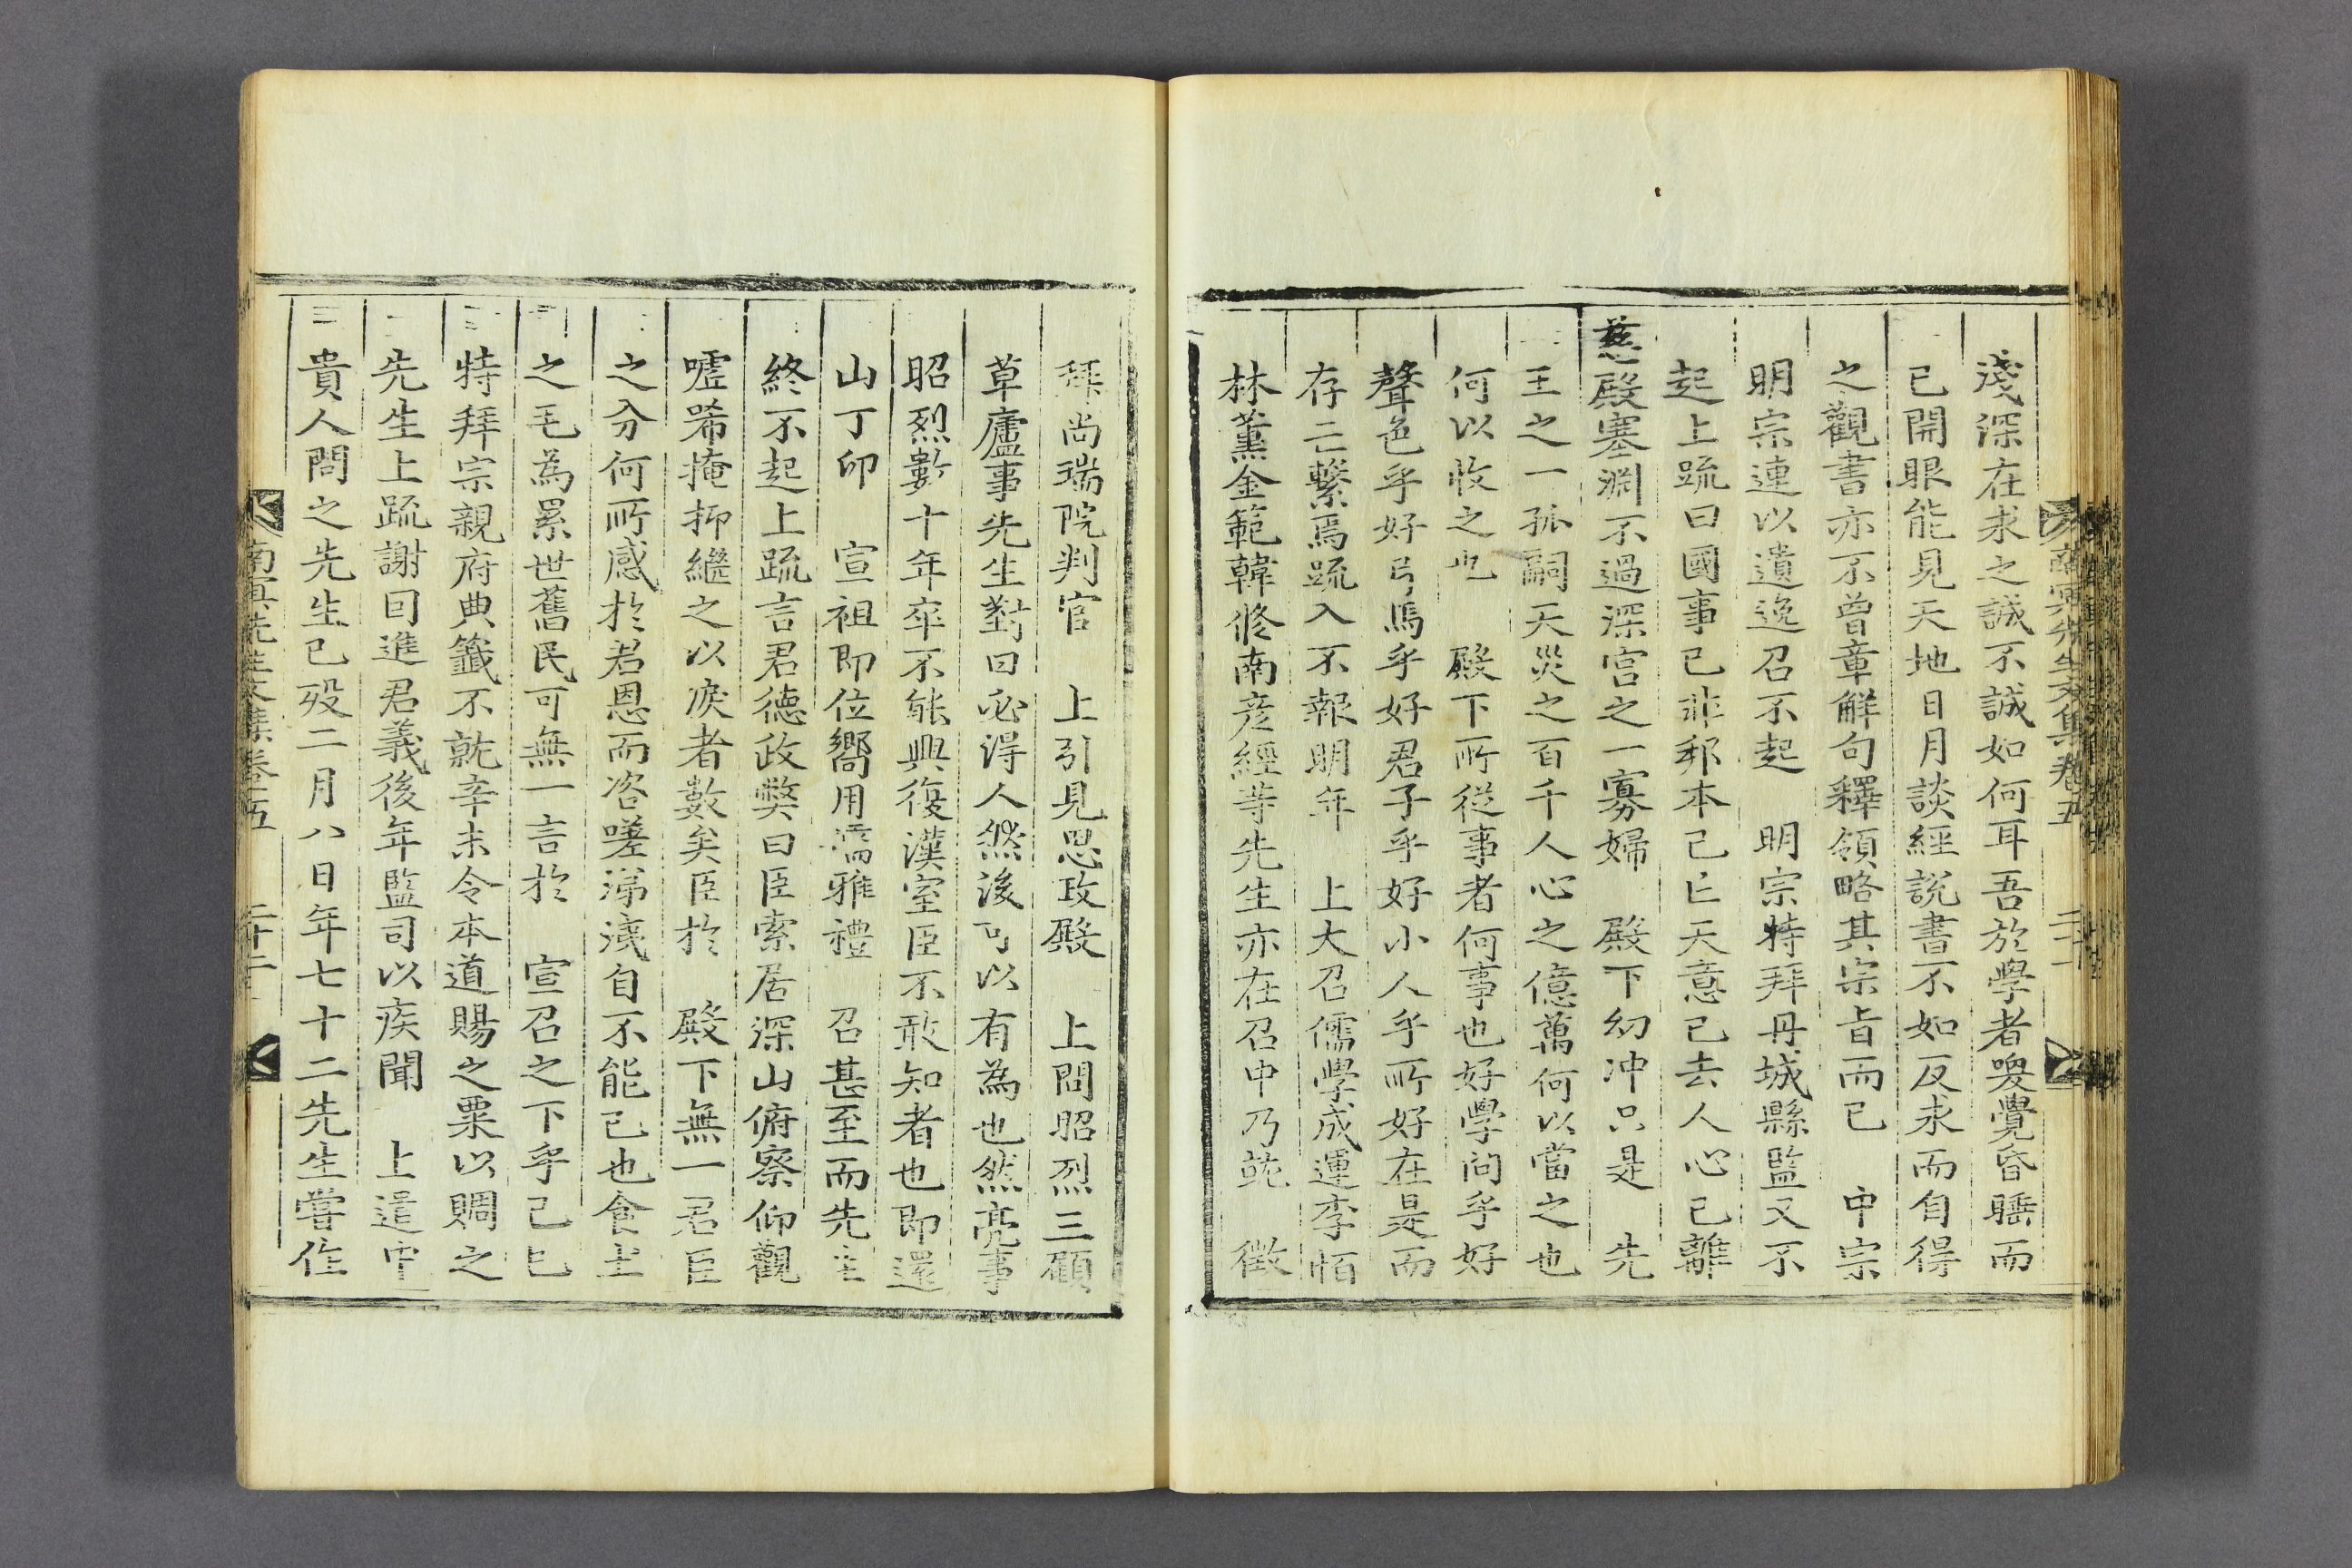 南冥先生文集卷五
淺深在求之誠不誠如何耳吾於學者喚覺昏睡而
已開眼能見天地日月談經說書不如反求而自得
之觀書亦不曾章解句釋領略其宗旨而已 中宗
明宗連以遺逸召不起 明宗特拜丹城縣監又不
起上疏曰國事已非邦本已亡天意已去人心已離
慈殿塞淵不過深宮之一寡婦 殿下幼冲只是 先
王之一孤嗣天災之百千人心之億萬何以當之也
何以收之也 殿下所從事者何事也好學問乎好
聲色乎好弓馬乎好君子乎好小人乎所好在是而
存亡繫焉疏入不報明年 上大召儒學成運李恒
林薰金範韓脩南彦經等先生亦在召中乃就 徵
拜尚瑞院判官 上引見思政殿 上問昭烈三顧
草廬事先生對曰必得人然後可以有爲也然亮事
昭烈數十年卒不能興復漢室臣不敢知者也即還
山丁卯 宣祖即位嚮用儒雅禮 召甚至而先生
終不起上疏言君德政弊曰臣索居深山俯察仰觀
噓唏掩抑繼之以淚者數矣臣於 殿下無一君臣
之分何所感於君恩而咨嗟涕洟自不能已也食土
之毛爲累世舊民可無一言於 宣召之下乎己巳
特拜宗親府典籤不就辛未令本道賜之粟以賙之
先生上疏謝回進君義後年監司以疾聞 上遣中
貴人問之先生已歿二月八日年七十二先生嘗作
南冥先生文集卷五 二十二